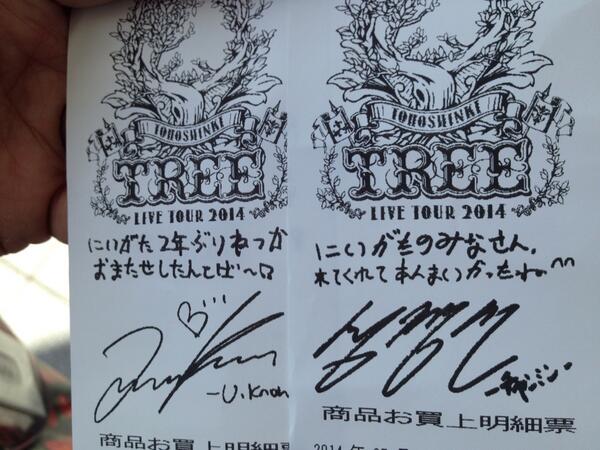 TOHOSHINKI
TREE
LIVE TOUR 2014
にいがた2年ぶりねっか
おまたせしたんてば〜
-U.Know
商品お買上明細票
TOHOSHINKI
TREE
LIVE TOUR 2014
にいがたのみなさん。
来てくれて
商品お買上明細票
2014年